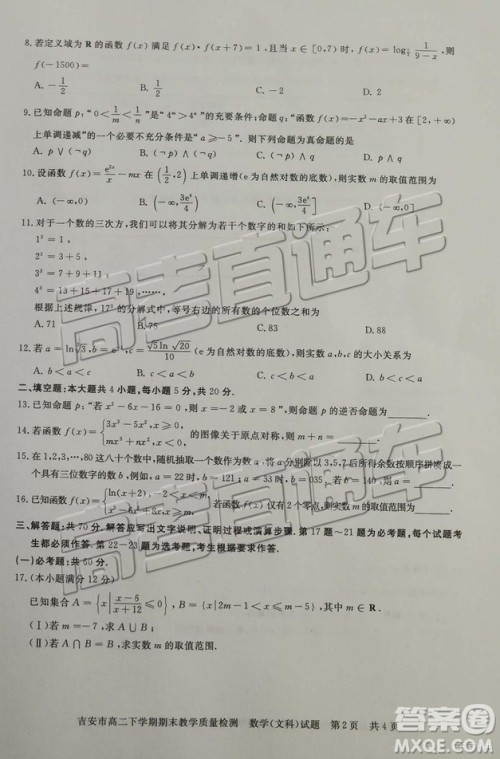 8.若定义域为 R 的函数 f(x) 满足 f(x)·f(x+7)=1,且当 x∈[0,7) 时,f(x)=log 1/(9-x),则
f(-1500)=
A. -1/2 B. 1/2 C. D.
9.已知命题 p:“0<1/m<1/n”是“4ᵐ>4ⁿ”的充要条件,命题 q:“函数 f(x)=-x²-ax+4 在[2,+∞)
上单调递减”的一个必要不充分条件是“a≥-5”.则下列命题为真命题的是
A. p∨(¬q) B. p∧q C. (¬p)∧(¬q) D. (¬p)∧q
10.设函数 f(x)= -mx 在(1/2,2)上单调递增(e 为自然对数的底数),则实数 m 的取值范围
为
A. B. C. D.
11.对于一个数的三次方,我们可以将其分解为若干个数字的和如下所示:
1³=1,
2³=3+5,
3³=7+9+11,
4³=13+15+17+19,…,
根据上述规律,17³的分解式中,等号右边的所有的数的个位数之和为
A. 71 B. 75 C. 83 D. 88
12.若 a=ln , b=e , c= (e 为自然对数的底数),则实数 a,b,c 的大小关系为
A. b<a<c B. c<a<b C. D. b<c<a
二、填空题:本大题共 4 小题,每小题 5 分,共 20 分.
13.已知命题 p:“若 x²-6x-16=0,则 x=-2 或 x=8”,则命题 p 的逆否命题为 .
14.若函数 f(x)={3x³-5x,x≥0 mx³+nx,x<0 的图像关于原点对称,则 m+n= .
15.在 1,2,3,…,80 这八十个数中,随机抽取一个数作为数 a,将 a 分别除以 3,5,7 后所得余数按顺序拼凑成一
个具有三位数字的数 b.例如,a=22 时,b=121;a=33 时,b=035.若 b=140,则 a= .
16.已知函数 f(x)= 若函数 f(x)仅有 2 个零点,则实数 m 的取值范围为 .
三、解答题:共 70 分. 解答应写出文字说明、证明过程或演算步骤. 第 17 题~21 题为必考题,每个试题考
生都必须作答. 第 22-23 题为选考题,考生根据要求作答.
(一)必考题:共 60 分.
17.(本小题满分 12 分)
已知集合 A={x|(x-6)/(x+12)≤0},B={x|2m-1<x<m-5},其中 m∈R.
(Ⅰ)若 m=-7,求 A∩B;
(Ⅱ)若 A∩B=B,求实数 m 的取值范围.
吉安市高二下学期期末教学质量检测 数学(文科)试题 第 2 页 共 4 页
高考直通车
答案圈